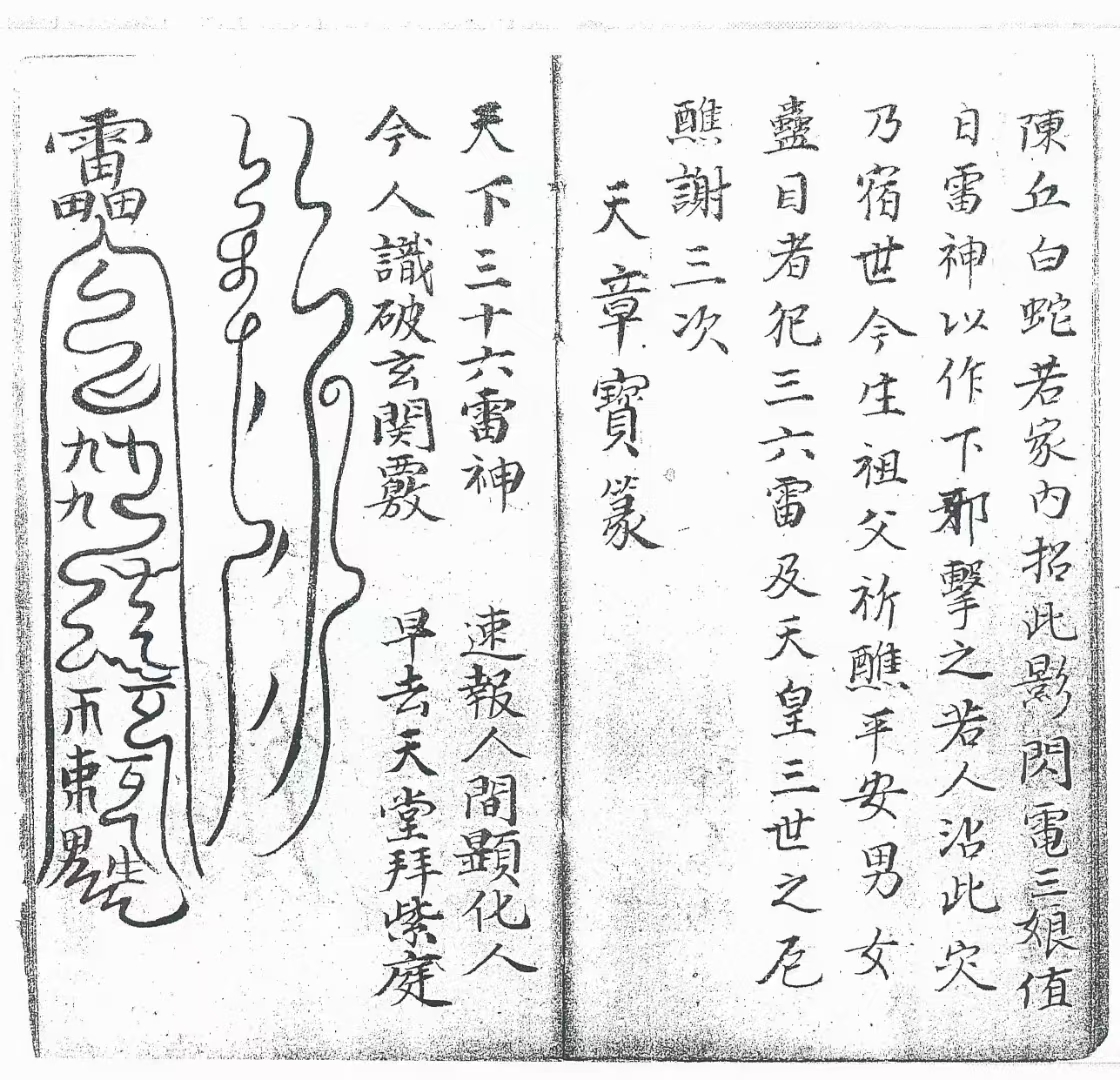 陳丘白蛇若家内招此影閃電三娘值
日雷神以作下邪擊之若人沾此穴
乃宿世今生祖父祈醮平安男女
蠱目者犯三六雷及天皇三世之厄
醮謝三次
天章寶篆
天下三十六雷神 速報人間顯化人
今人識破玄関覈 早去天堂拜紫庭